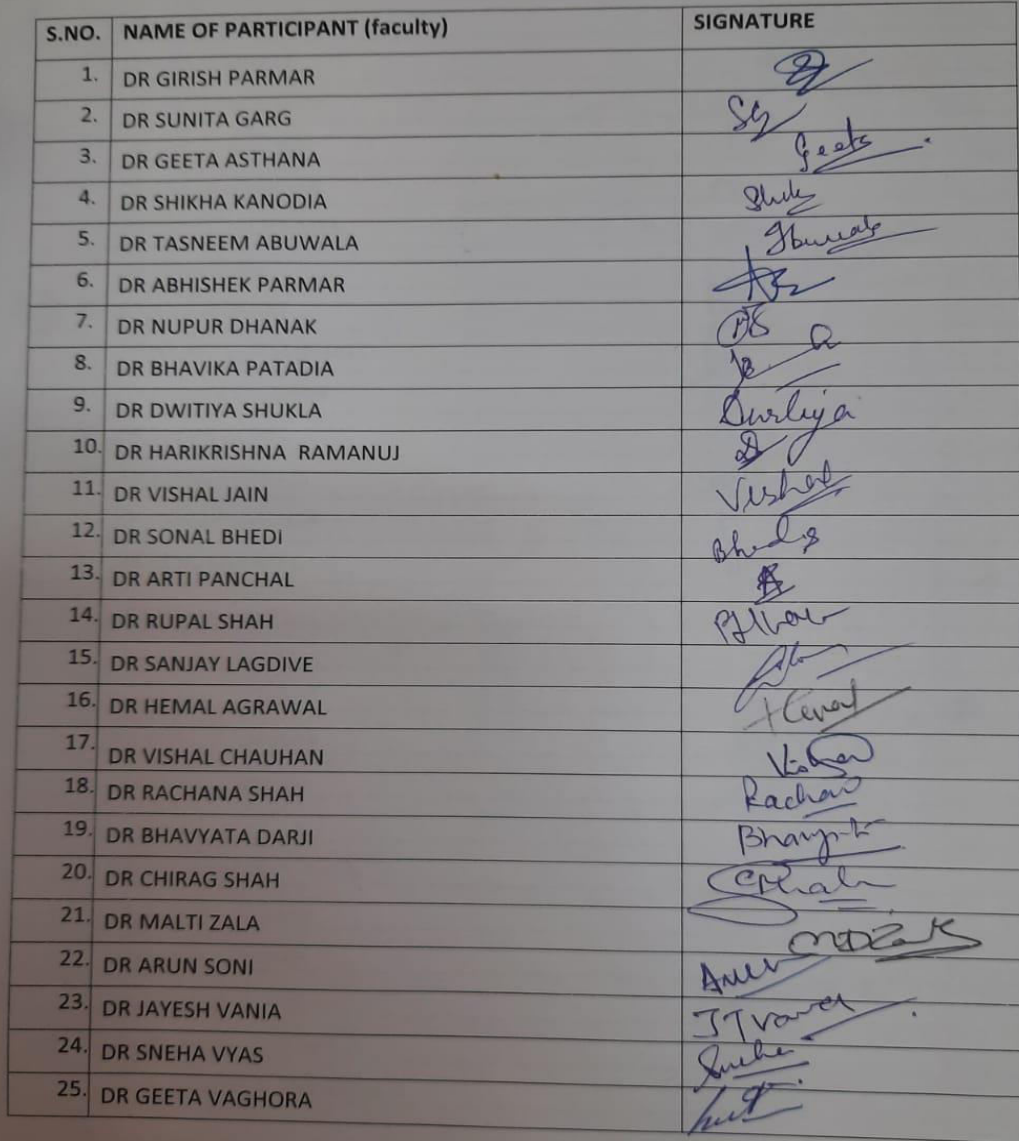 S.NO. NAME OF PARTICIPANT (faculty) SIGNATURE
1. DR GIRISH PARMAR
2. DR SUNITA GARG SG
3. DR GEETA ASTHANA Geeta
4. DR SHIKHA KANODIA
5. DR TASNEEM ABUWALA
6. DR ABHISHEK PARMAR
7. DR NUPUR DHANAK
8. DR BHAVIKA PATADIA
9. DR DWITIYA SHUKLA
10. DR HARIKRISHNA RAMANUJ
11. DR VISHAL JAIN Vishal
12. DR SONAL BHEDI
13. DR ARTI PANCHAL
14. DR RUPAL SHAH
15. DR SANJAY LAGDIVE
16. DR HEMAL AGRAWAL
17. DR VISHAL CHAUHAN
18. DR RACHANA SHAH
19. DR BHAVYATA DARJI
20. DR CHIRAG SHAH
21. DR MALTI ZALA
22. DR ARUN SONI
23. DR JAYESH VANIA
24. DR SNEHA VYAS
25. DR GEETA VAGHORA